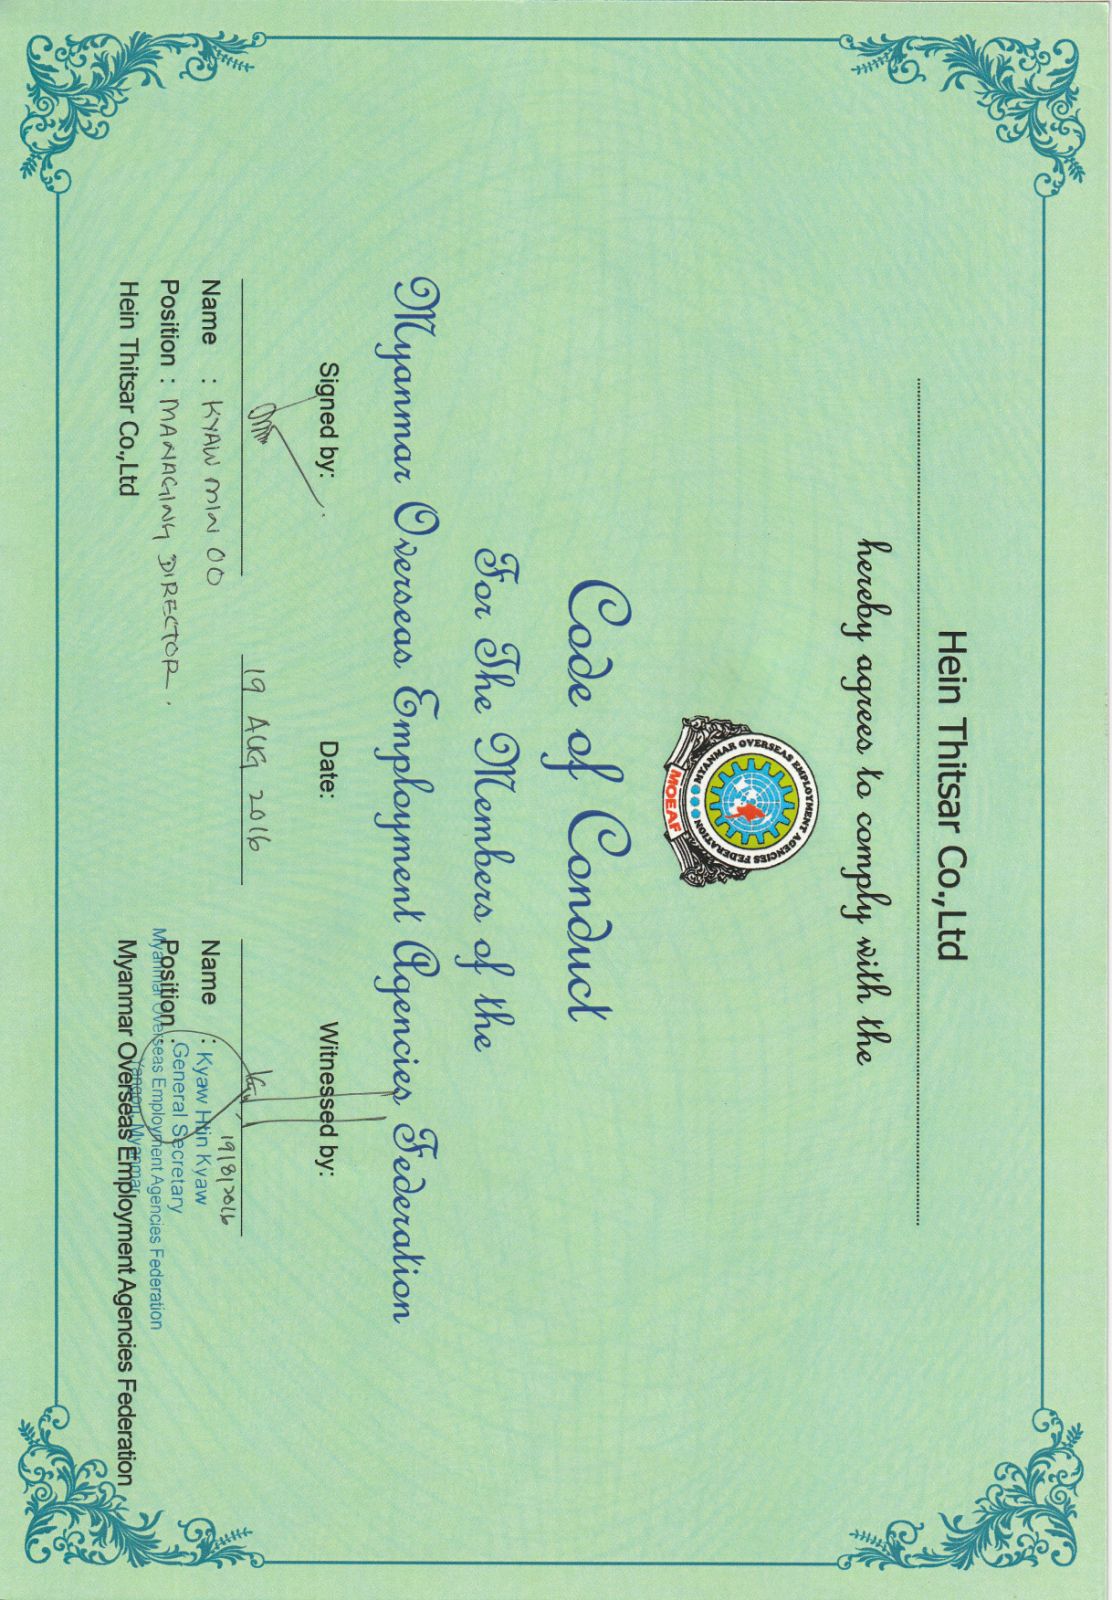 Hein Thitsar Co.,Ltd
hereby agrees to comply with the
MYANMAR OVERSEAS EMPLOYMENT AGENCIES FEDERATION
MOEAF
Code of Conduct
For The Members of the
Myanmar Overseas Employment Agencies Federation
Signed by:
Date:
Witnessed by:
19 AUG 2016
19/8/2016
Name : KYAW MIN OO
Position : MANAGING DIRECTOR.
Hein Thitsar Co.,Ltd
Name : Kyaw Htin Kyaw
General Secretary
Position :
Myanmar Overseas Employment Agencies Federation
Yangon, Myanmar
Myanmar Overseas Employment Agencies Federation